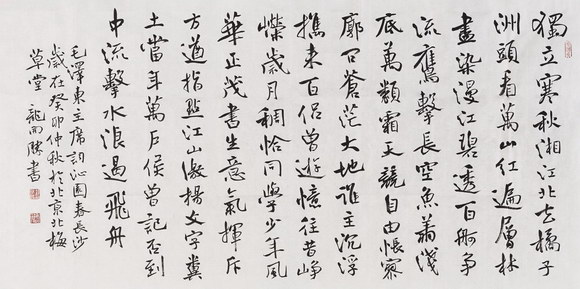 獨立寒秋湘江北去橘子
洲頭看萬山紅遍層林
盡染漫江碧透百舸争
流鷹擊長空魚翔淺
底萬類霜天競自由悵寥
廓問蒼茫大地誰主沉浮
携來百侣曾遊憶往昔崢
嶸歲月稠恰同學少年風
華正茂書生意氣揮斥
方遒指點江山激揚文字糞
土當年萬户侯曾記否到
中流擊水浪遏飛舟
毛澤東主席詞沁園春長沙
歲在癸卯仲秋於北京北梅
草堂 書